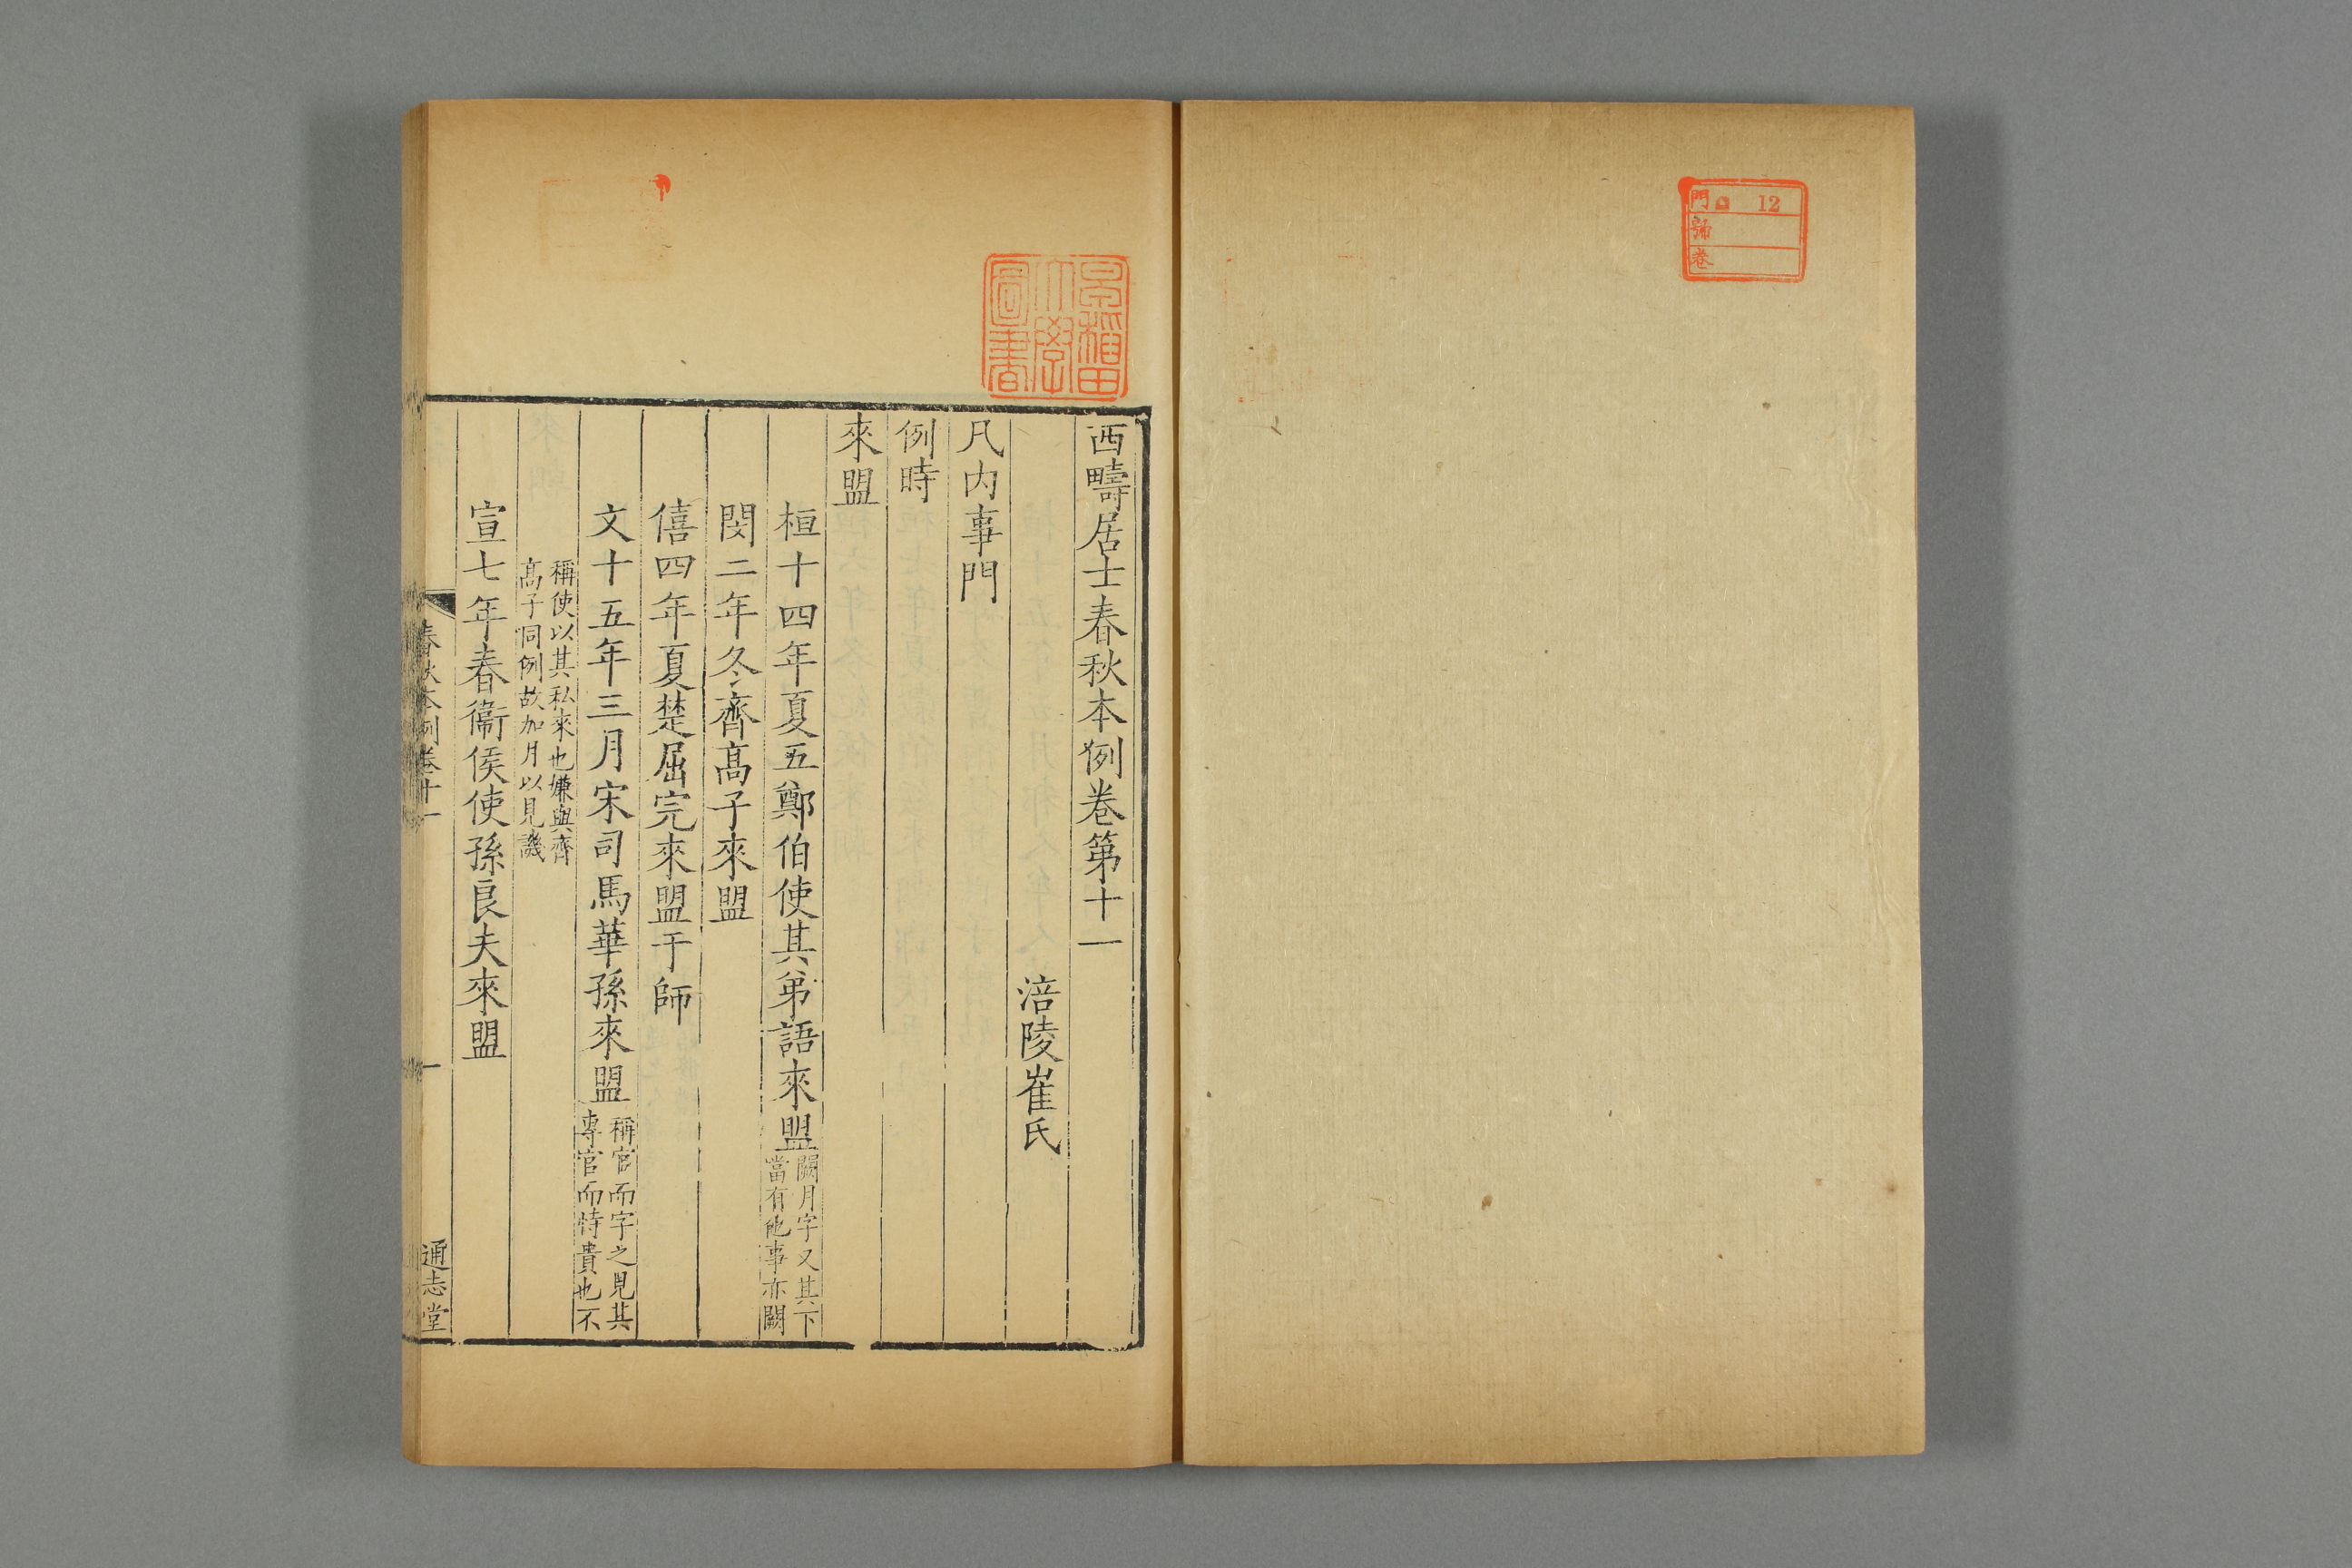 門 12
號
卷
早稻田
大學
圖書
西疇居士春秋本例卷第十一
涪陵崔氏
凡内事門
例時
來盟
桓十四年夏五鄭伯使其弟語來盟
闕月字又其下
當有他事亦闕
閔二年冬齊髙子來盟
僖四年夏楚屈完來盟于師
文十五年三月宋司馬華孫來盟
稱官而字之見其
專官而恃貴也不
稱使以其私來也嫌與齊
髙子同例故加月以見譏
宣七年春衞侯使孫良夫來盟
春秋本例卷十一
一
通志堂